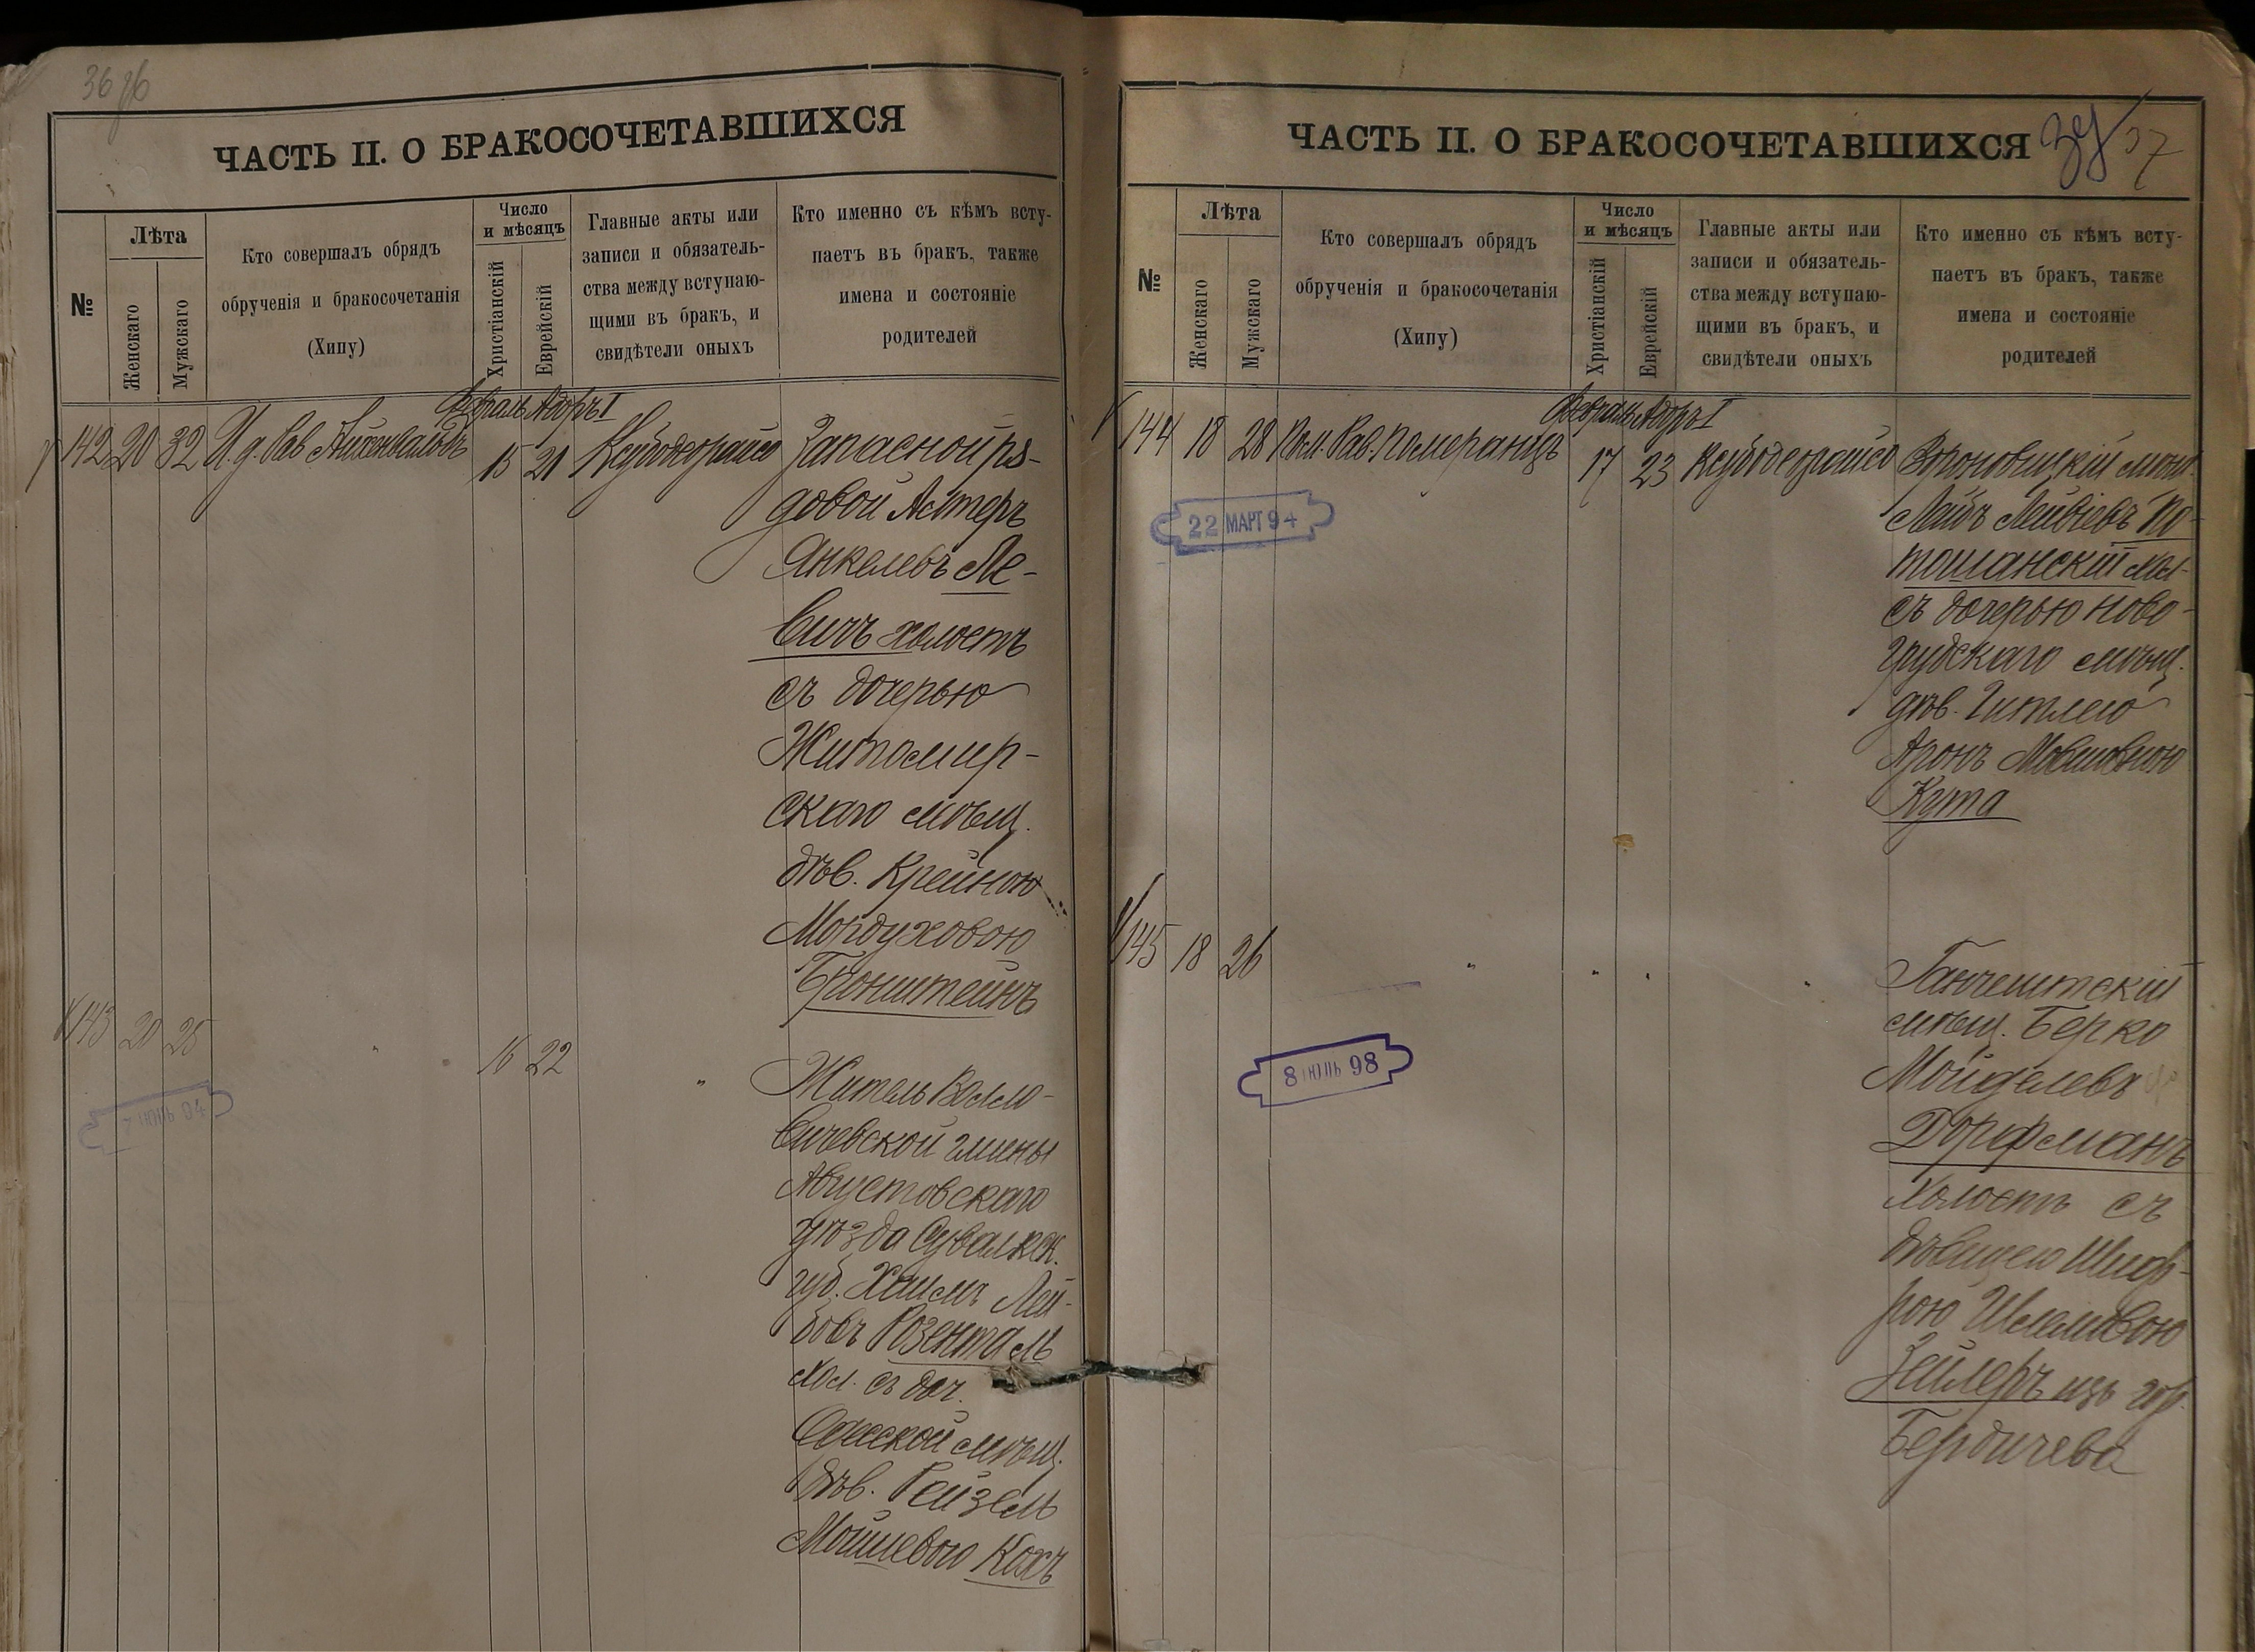 36 об
ЧАСТЬ II. О БРАКОСОЧЕТАВШИХСЯ
№
Лѣта
Женскаго
Мужскаго
Кто совершалъ обрядъ
обрученія и бракосочетанія
(Хипу)
Число
и мѣсяцъ
Христіанскій
Еврейскій
Главные акты или
записи и обязатель-
ства между вступаю-
щими въ бракъ, и
свидѣтели оныхъ
Кто именно съ кѣмъ всту-
паетъ въ бракъ, также
имена и состояніе
родителей
Февраль Адоръ I
142 20 32 И. д. Рав Айхенвальдъ 15 21 Ксубодеорайсо Запасной ря-
довой Астеръ
Янкелевъ Ле-
вичъ холостъ
съ дочерью
Житомир-
скаго мѣщ.
дѣв. Крейною
Мордуховою
Бронштейнъ
143 20 25 " " 16 22 " Житель Волло-
вичевской гмины
Августовскаго
уѣзда Сувалкск.
губ. Хаимъ Лей-
бовъ Розенталь
хол. съ доч.
Одесской мѣщ.
дѣв. Рейзель
Мошшевою Кахъ
ЧАСТЬ II. О БРАКОСОЧЕТАВШИХСЯ
37
№
Лѣта
Женскаго
Мужскаго
Кто совершалъ обрядъ
обрученія и бракосочетанія
(Хипу)
Число
и мѣсяцъ
Христіанскій
Еврейскій
Главные акты или
записи и обязатель-
ства между вступаю-
щими въ бракъ, и
свидѣтели оныхъ
Кто именно съ кѣмъ всту-
паетъ въ бракъ, также
имена и состояніе
родителей
Февраль Адоръ I
144 18 28 Пом. Рав. Померанцъ 17 23 Ксубодеорайсо Вороновицкій мѣщ.
Лейбъ Лейвіевъ По-
тошанскій хол.
съ дочерью Ново-
грудскаго мѣщ.
дѣв. Гитлею
Аронъ Мовшовною
Кута
22 МАРТ 94
145 18 26 " " " " Ганчештскій
мѣщ. Берко
Мойделевъ
Дорфманъ
холостъ съ
дѣвицею Шиф-
рою Шлемивою
Зейлеръ изъ гор.
Бердичева
8 ІЮЛЬ 98